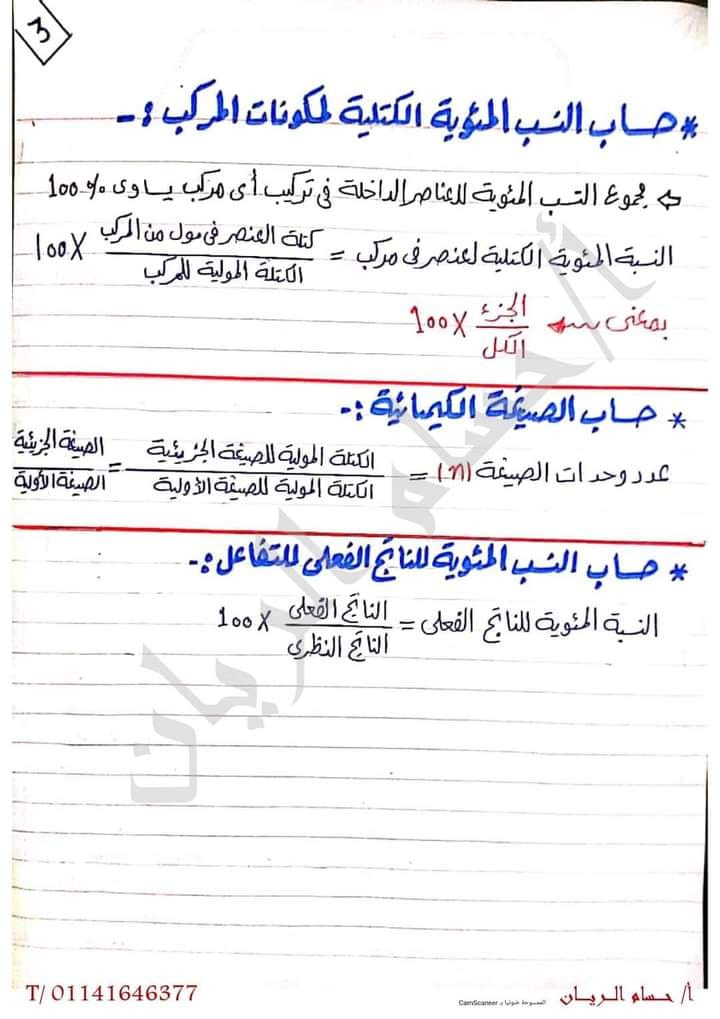 3
* حساب النسب المئوية الكتلية لمكونات المركب :-
⇦ مجموع النسب المئوية للعناصر الداخلة فى تركيب أى مركب يساوى %100
النسبة المئوية الكتلية لعنصر فى مركب = كتلة العنصر فى مول من المركب / الكتلة المولية للمركب × 100
بمعنى ← الجزء / الكل × 100
* حساب الصيغة الكيمائية :-
عدد وحدات الصيغة (n) = الكتلة المولية للصيغة الجزيئية / الكتلة المولية للصيغة الأولية = الصيغة الجزيئية / الصيغة الأولية
* حساب النسب المئوية للناتج الفعلى للتفاعل :-
النسبة المئوية للناتج الفعلى = الناتج الفعلى / الناتج النظرى × 100
أ/حسام الريان
أ/ حسام الريان
الممسوحة ضوئيا بـ CamScanner
T/ 01141646377